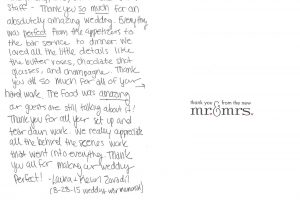 Staff - Thank you so much for an
absolutely amazing wedding. Everything
was perfect from the appetizers to
the bar service to dinner. We
loved all the little details like
the butter roses, chocolate shot
glasses, and champagne. Thank
you all so much for all of your
hard work. The food was amazing
our guests are still talking about it!
Thank you for all your set up and
tear down work. We really appreciate
all the behind the scenes work
that went into everything. Thank
you all for making our wedding
perfect! - Laura + Kevin
(8-28-15 wedding
thank you from the new
mr&mrs.